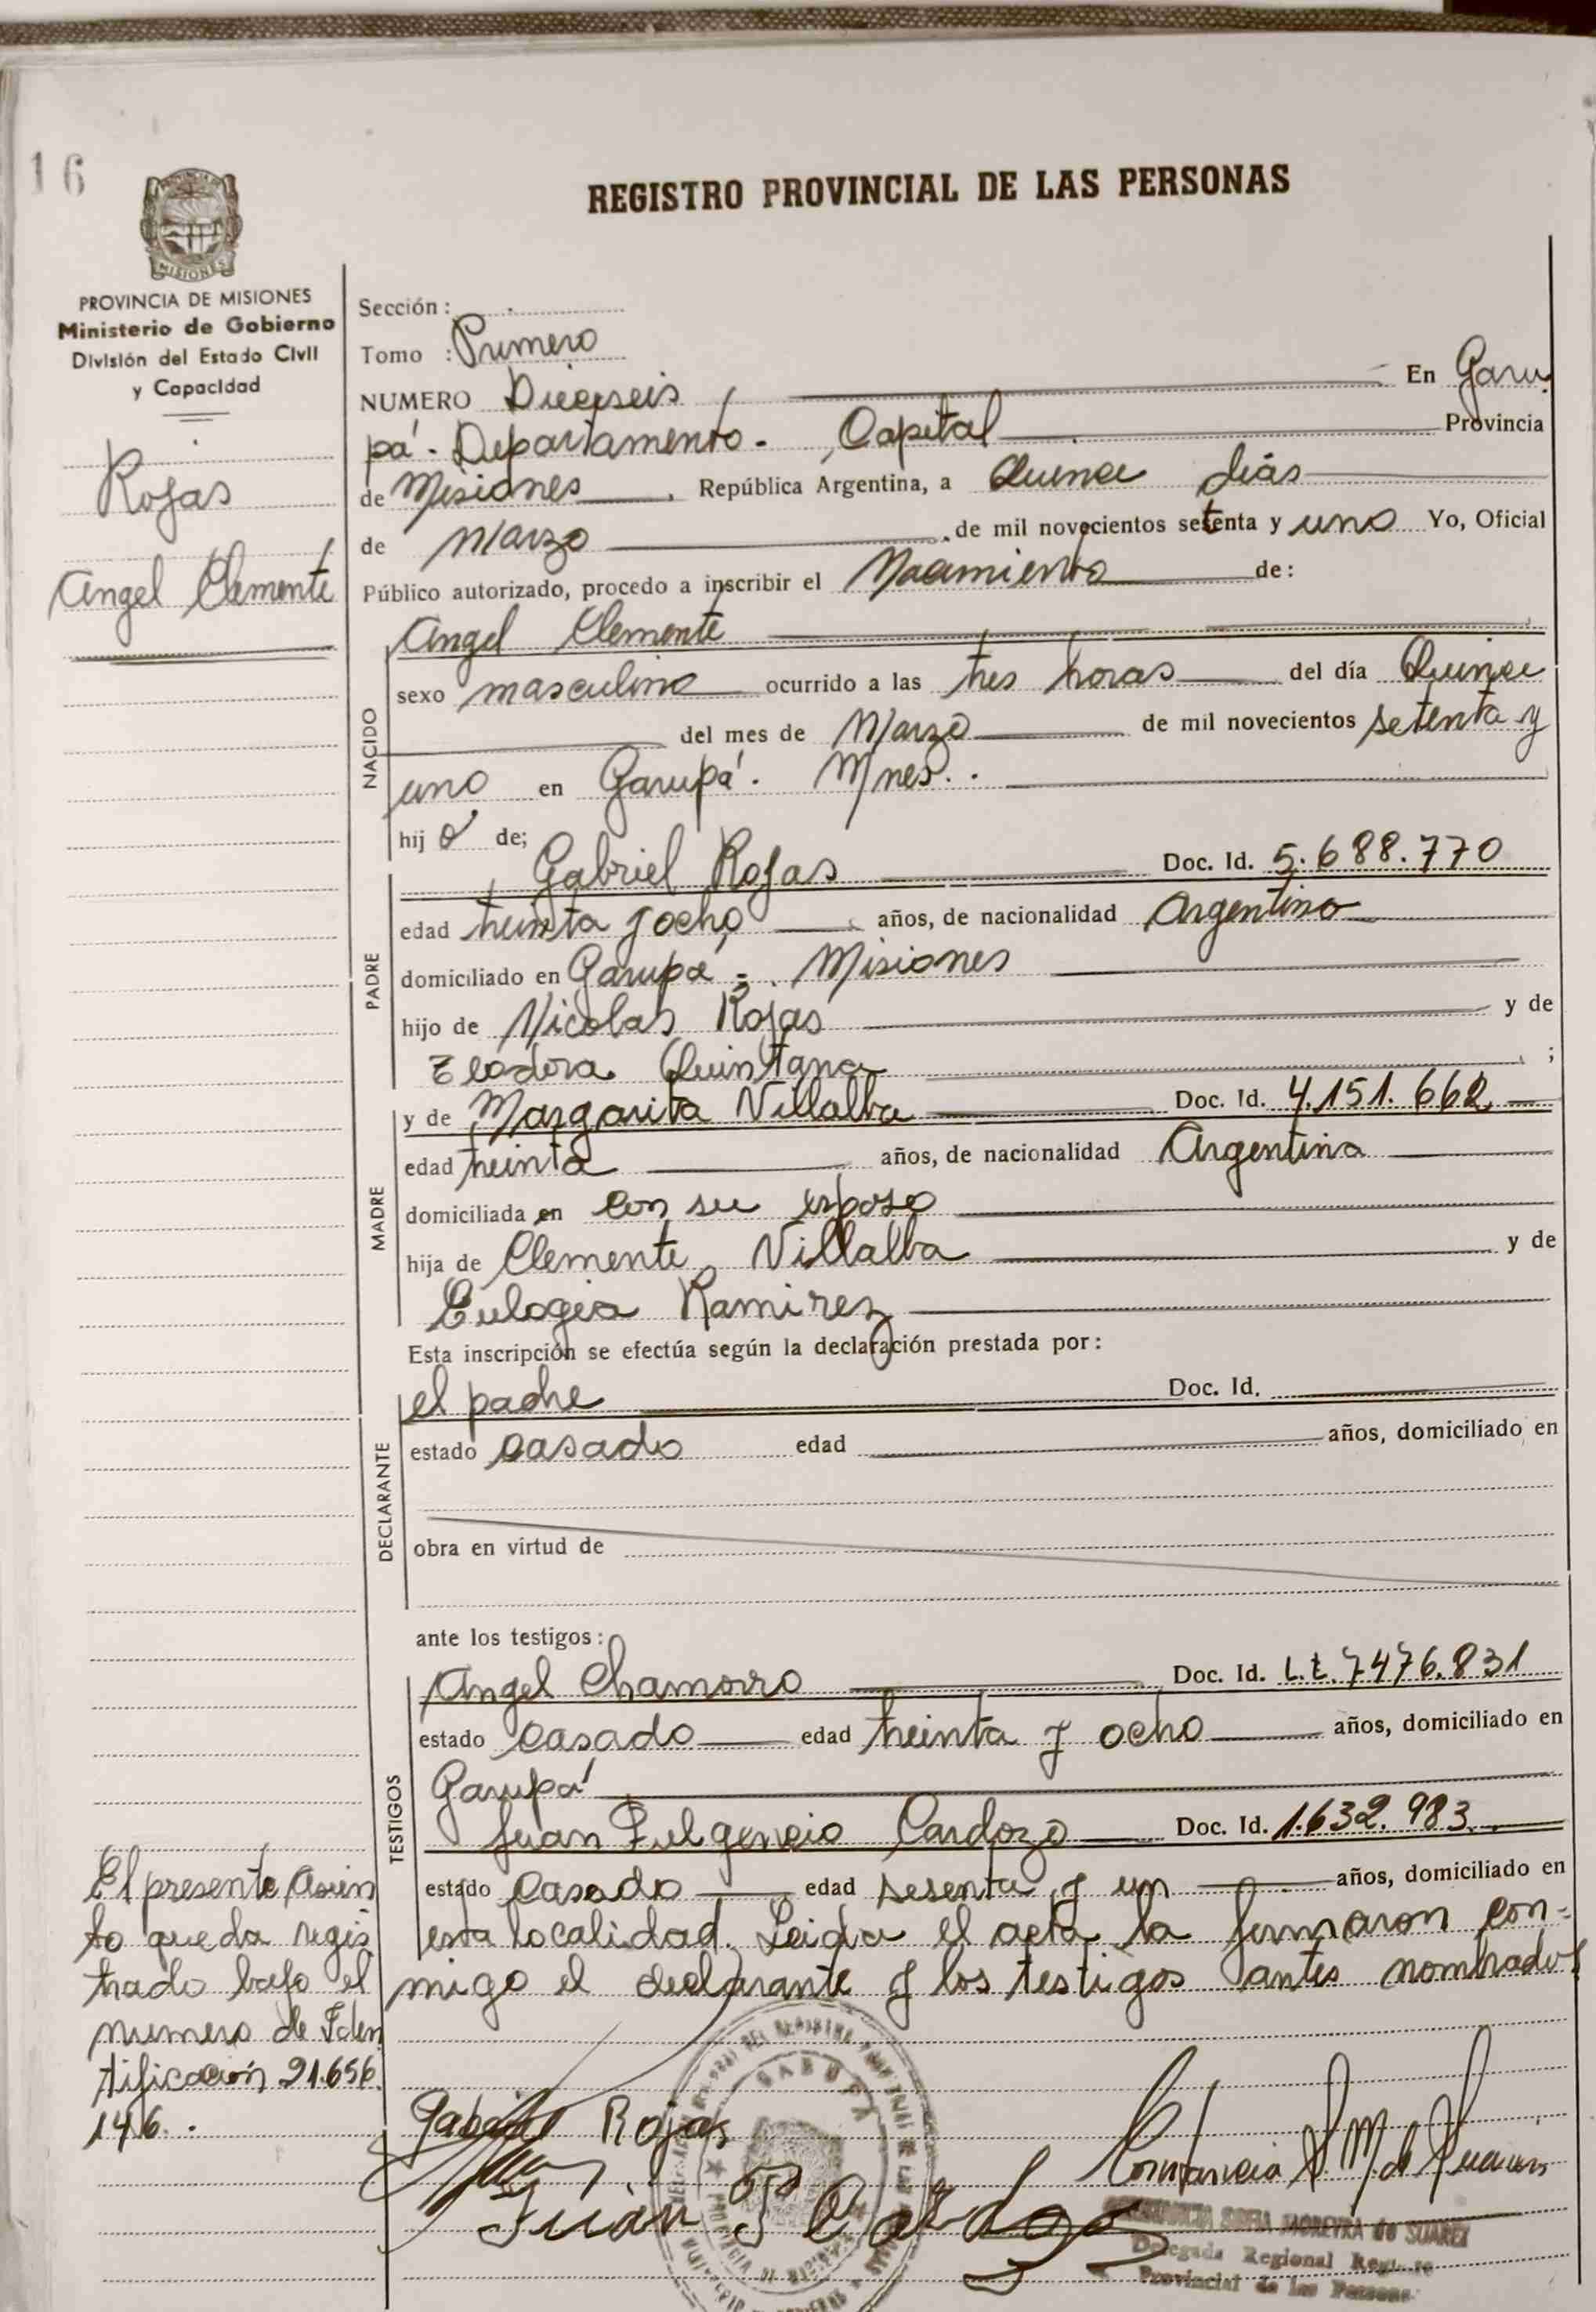 16
REGISTRO PROVINCIAL DE LAS PERSONAS
PROVINCIA DE MISIONES
MISIONES
PROVINCIA DE MISIONES
Ministerio de Gobierno
División del Estado Civil
y Capacidad
Rojas
Angel Clemente
Sección:
Tomo : Primero
NUMERO Dieciseis En Garu
pá. Departamento. Capital Provincia
de Misiones , República Argentina, a Quince días
de Marzo de mil novecientos setenta y uno Yo, Oficial
Público autorizado, procedo a inscribir el Nacimiento de:
NACIDO
Angel Clemente
sexo masculino ocurrido a las tres horas del día Quince
del mes de Marzo de mil novecientos setenta y
uno en Garupá. Mnes.
hij o de;
PADRE
Gabriel Rojas Doc. Id. 5.688.770
edad treinta y ocho años, de nacionalidad Argentino
domiciliado en Garupá - Misiones
hijo de Nicolas Rojas y de
Eleodora Quintana ;
MADRE
y de Margarita Villalba Doc. Id. 4.151.662
edad treinta años, de nacionalidad Argentina
domiciliada en con su esposo
hija de Clemente Villalba y de
Eulogia Ramirez
Esta inscripción se efectúa según la declaración prestada por:
DECLARANTE
el padre Doc. Id.
estado casado edad años, domiciliado en
obra en virtud de
ante los testigos:
TESTIGOS
Angel Chamorro Doc. Id. L.E. 7476.831
estado casado edad treinta y ocho años, domiciliado en
Garupá
Juan Fulgencio Cardozo Doc. Id. 1.632.983
estado casado edad sesenta y un años, domiciliado en
esta localidad. Leida el acta la firmaron con-
migo el declarante y los testigos antes nombrados
El presente asien
to queda regis
trado bajo el
numero de Iden
tificación 21.656.
146.
Gabriel Rojas
Juan F Cardozo
Constancia S. M. de Suarez
CONSTANCIA SOFIA MOREYRA de SUAREZ
Delegada Regional Registro
Provincial de las Personas
GARUPA